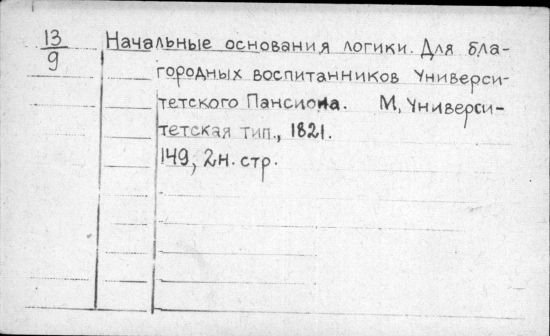 13
9
Начальные основания логики. Для бла-
городных воспитанников Универси-
тетского Пансиона. М, Универси-
тетская тип., 1821.
149, 2н. стр.